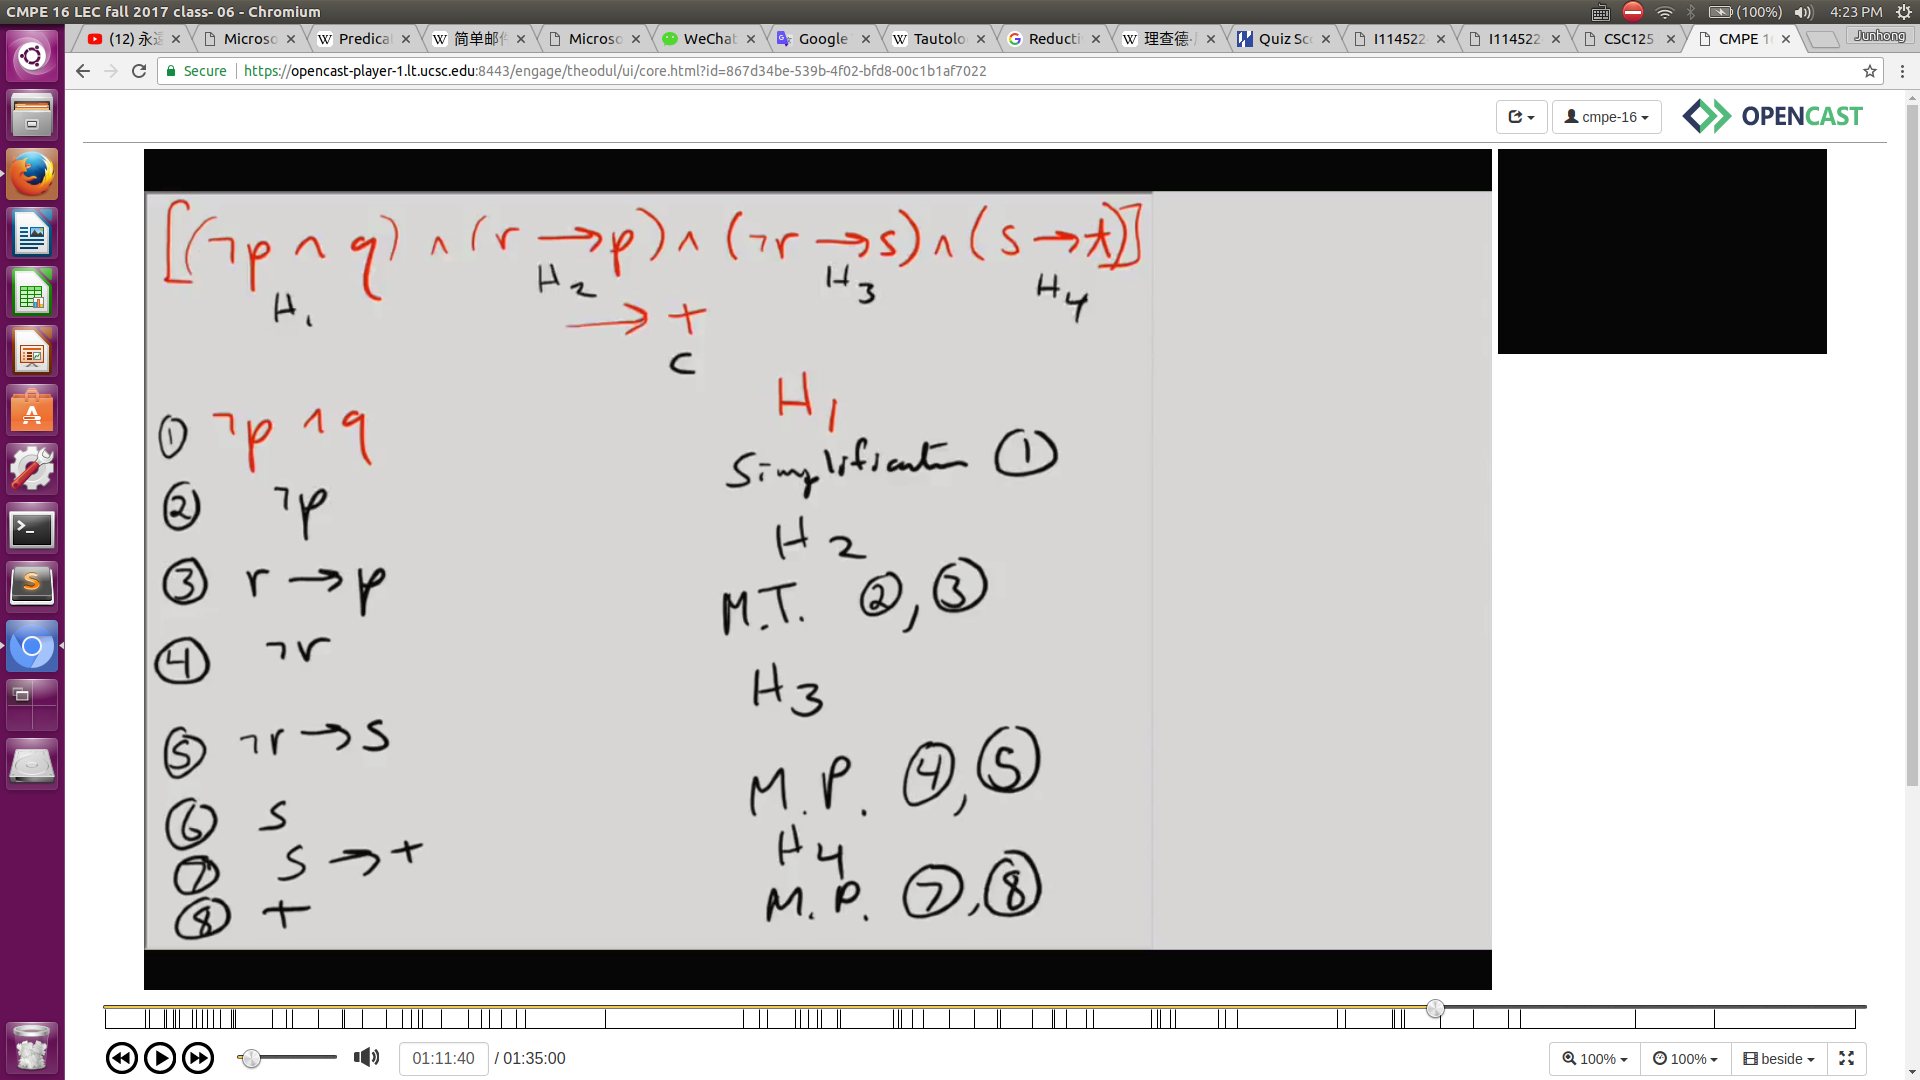 CMPE 16 LEC fall 2017 class- 06 - Chromium
(100%) 4:23 PM
(12) 永遠 Microso Predicat 简单邮件 Microso WeChat Google Tautolo Reducti 理查德· Quiz Sco I114522 I114522 CSC125 CMPE 1 Junhong
Secure https://opencast-player-1.lt.ucsc.edu:8443/engage/theodul/ui/core.html?id=867d34be-539b-4f02-bfd8-00c1b1af7022
cmpe-16 OPENCAST
[(¬p ∧ q) ∧ (r → p) ∧ (¬r → s) ∧ (s → t)]
H1 H2 H3 H4
→ t
C
① ¬p ∧ q H1
② ¬p Simplification ①
③ r → p H2
④ ¬r M.T. ②, ③
⑤ ¬r → s H3
⑥ s M.P. ④, ⑤
⑦ s → t H4
⑧ t M.P. ⑦, ⑧
01:11:40 / 01:35:00 100% 100% beside